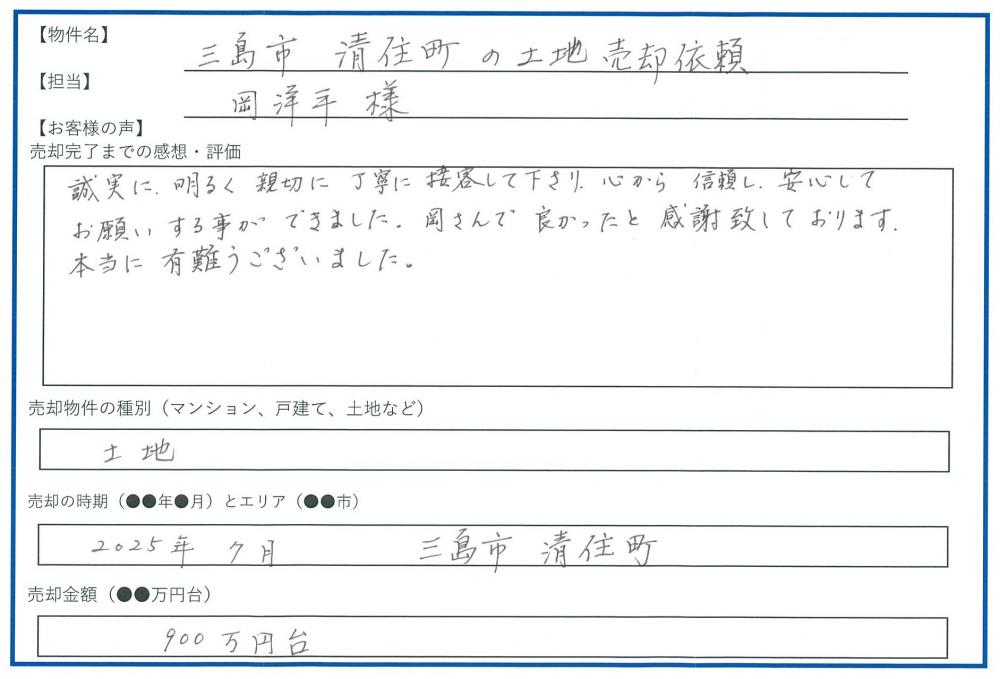 【物件名】
三島市 清住町の土地売却依頼
【担当】
岡洋平様
【お客様の声】
売却完了までの感想・評価
誠実に、明るく親切に丁寧に接客して下さり、心から信頼し、安心して
お願いする事ができました。岡さんで良かったと感謝致しております。
本当に有難うございました。
売却物件の種別（マンション、戸建て、土地など）
土地
売却の時期（●●年●月）とエリア（●●市）
2025年 7月 三島市 清住町
売却金額（●●万円台）
900万円台